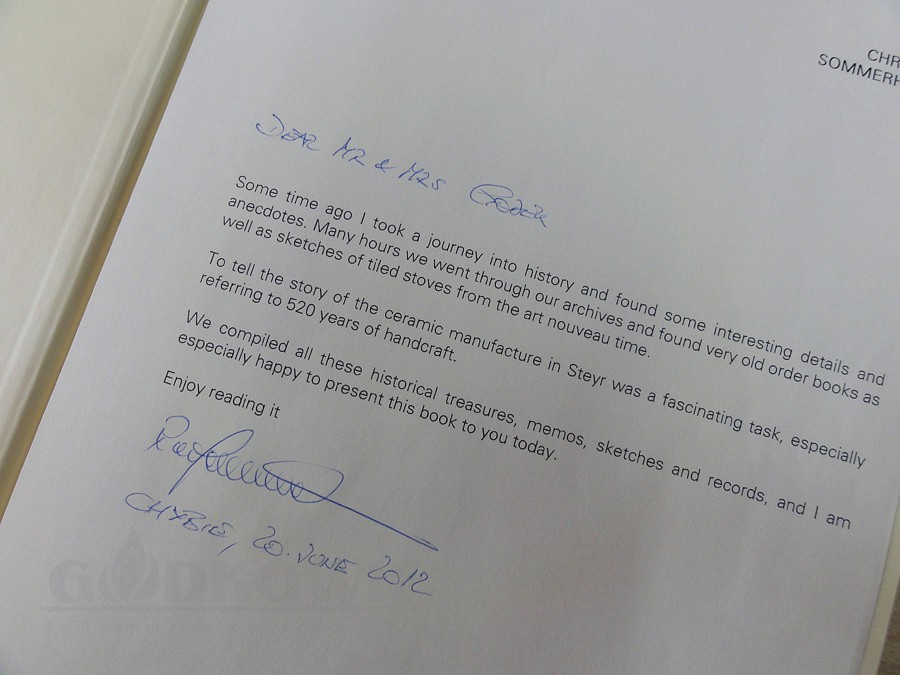 CHR
SOMMERH
DEAR MR & MRS
Some time ago I took a journey into history and found some interesting details and
anecdotes. Many hours we went through our archives and found very old order books as
well as sketches of tiled stoves from the art nouveau time.
To tell the story of the ceramic manufacture in Steyr was a fascinating task, especially
referring to 520 years of handcraft.
We compiled all these historical treasures, memos, sketches and records, and I am
especially happy to present this book to you today.
Enjoy reading it
CHYBIE, 20. JUNE 2012